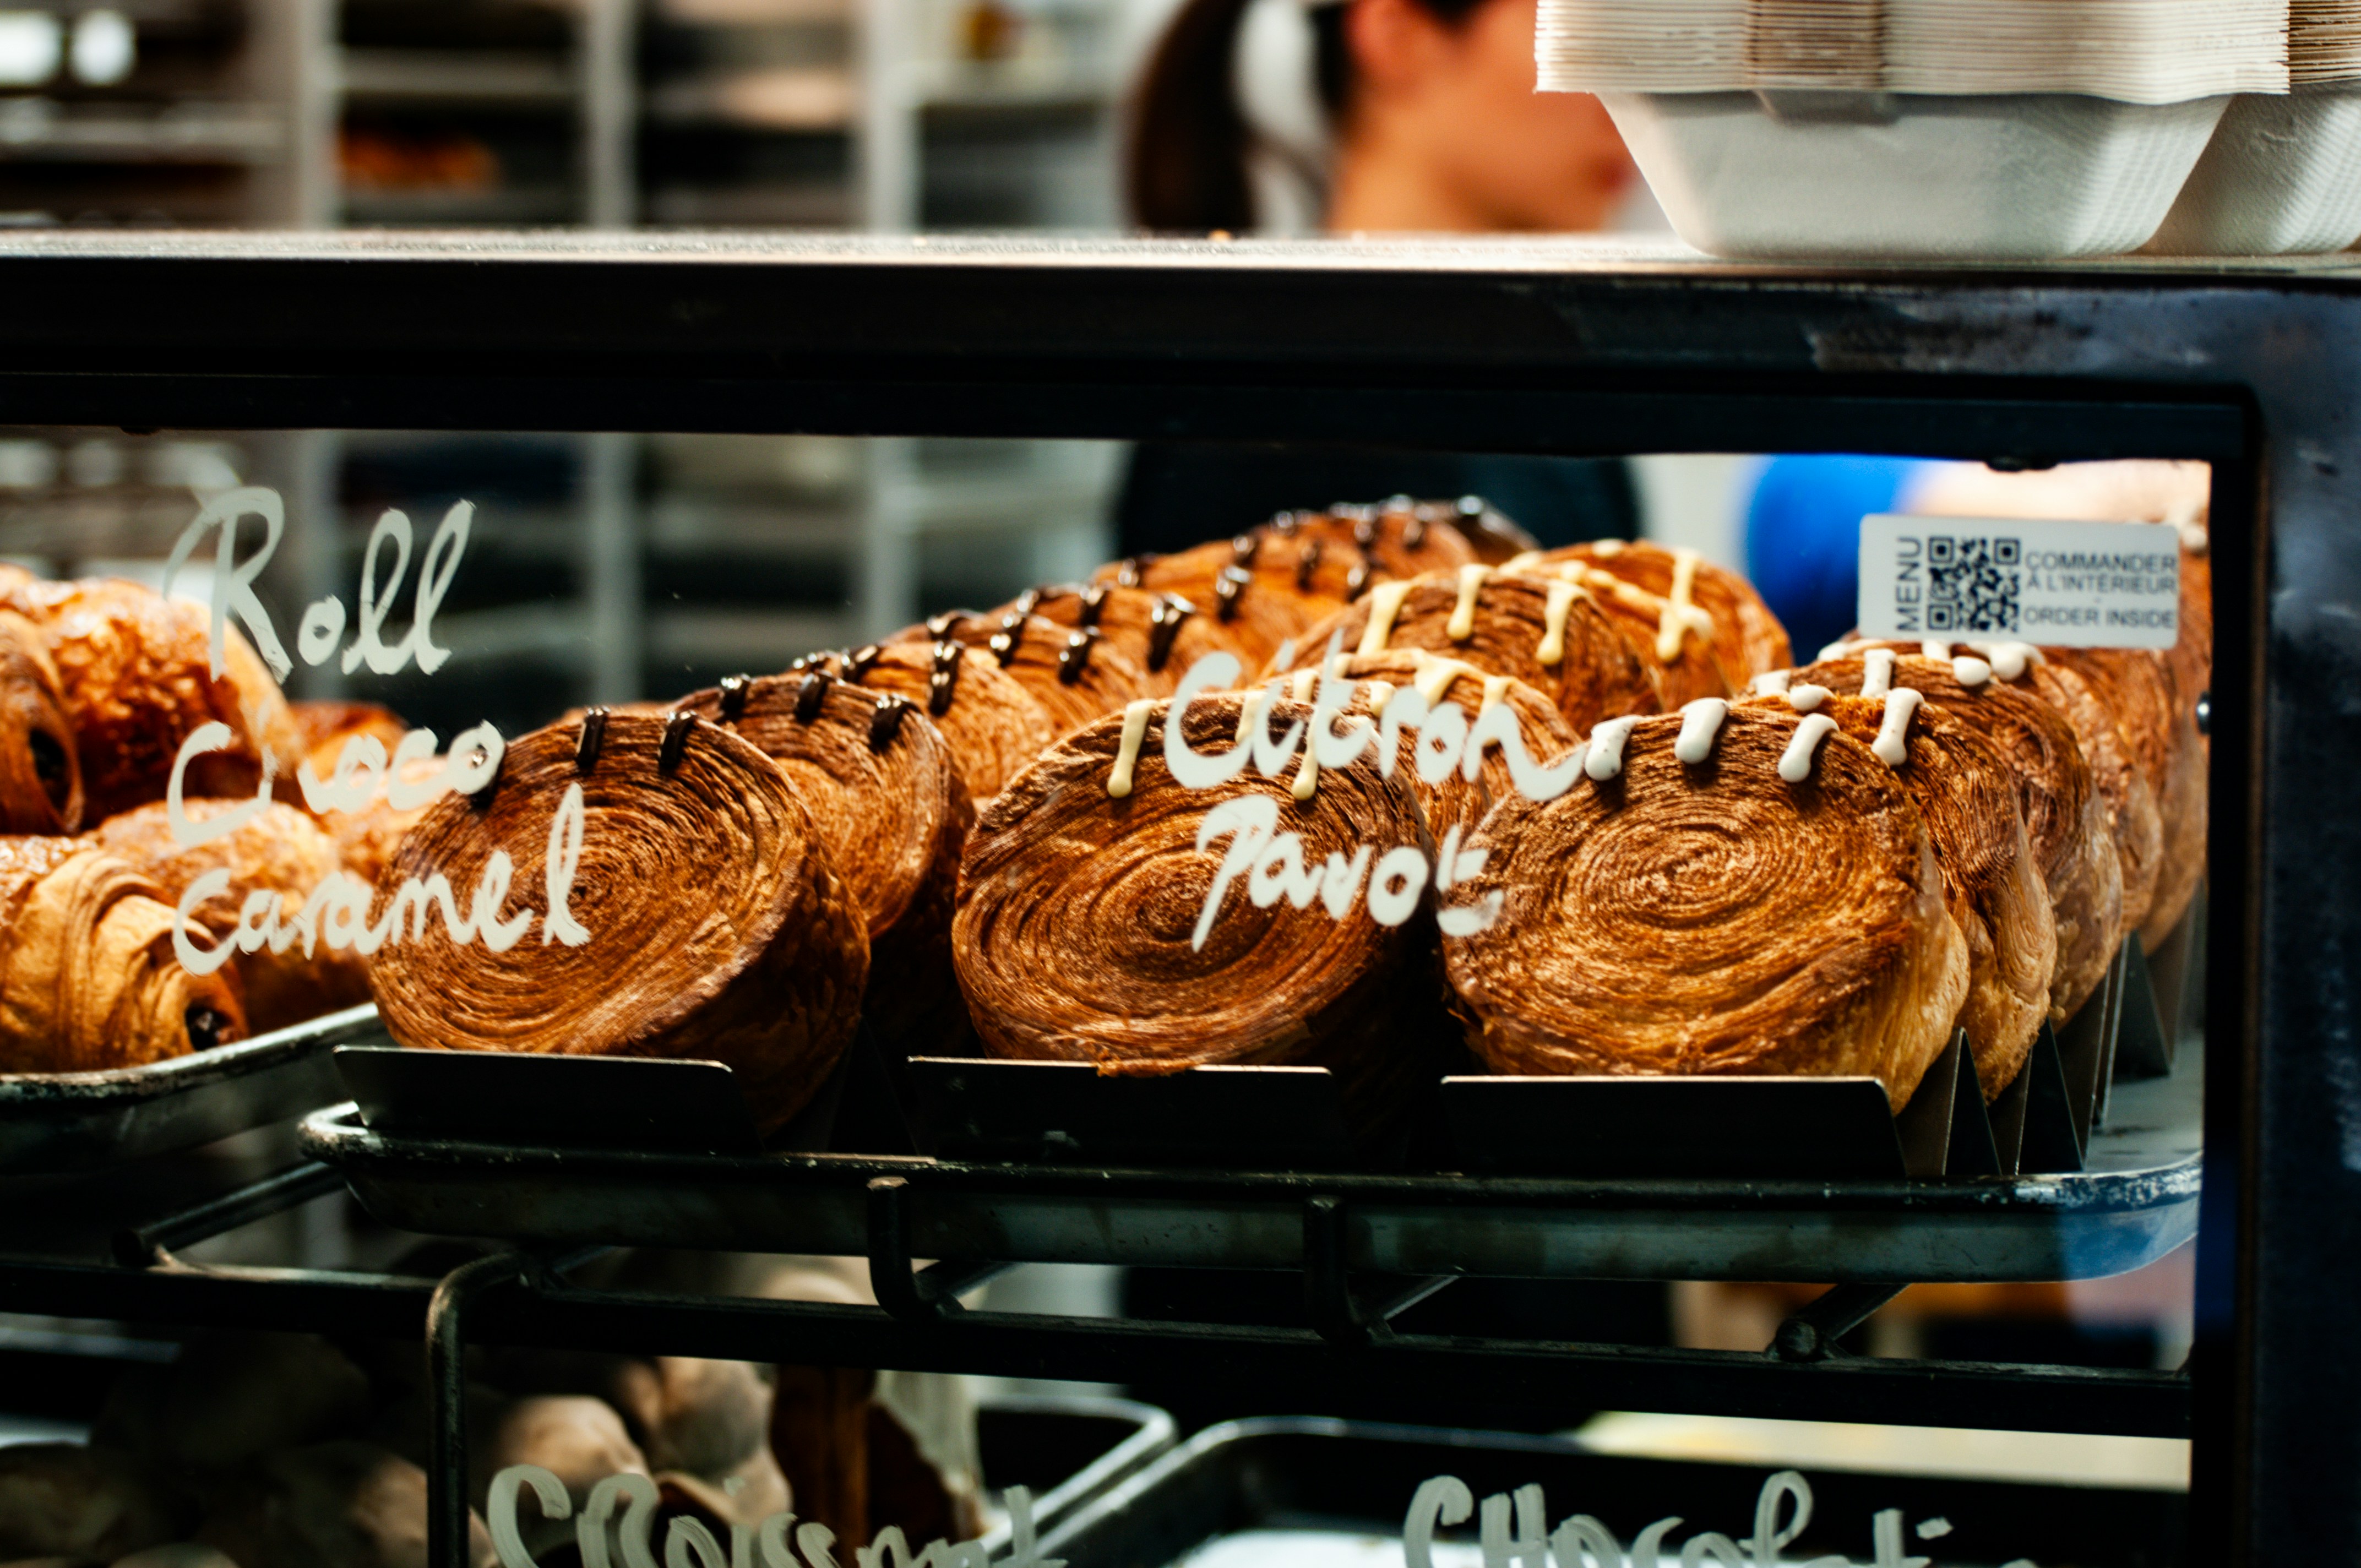 Roll
Choco
Caramel
Citron
Pavot
MENU
COMMANDER
À L'INTÉRIEUR
-
ORDER INSIDE
CRoissant